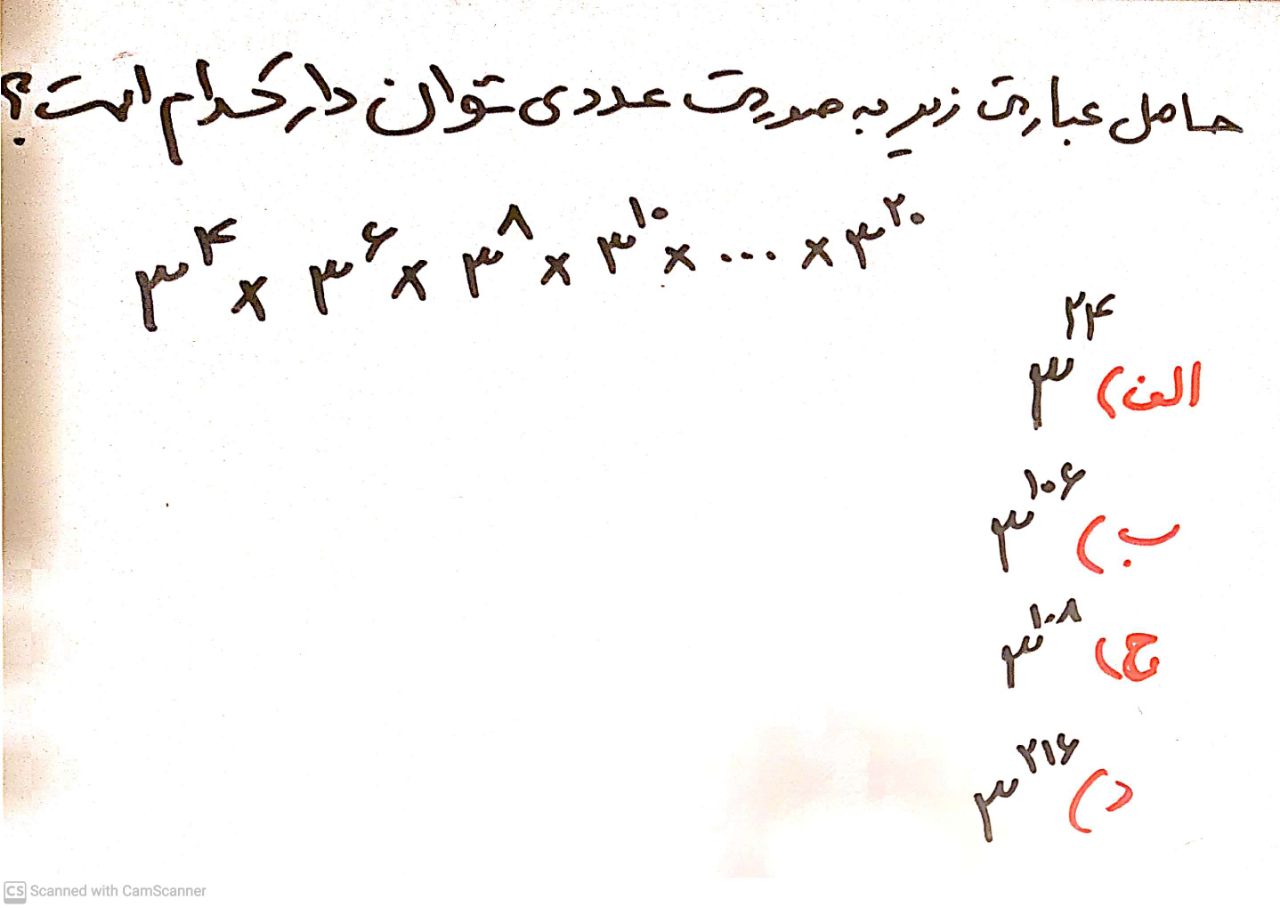 حاصل عبارت زیر به صورت عددی توان دار کدام است؟
۳^۴ × ۳^۶ × ۳^۸ × ۳^۱۰ × ... × ۳^۲۰
الف) ۳^۲۴
ب) ۳^۱۰۶
ج) ۳^۱۰۸
د) ۳^۲۱۶
CS Scanned with CamScanner